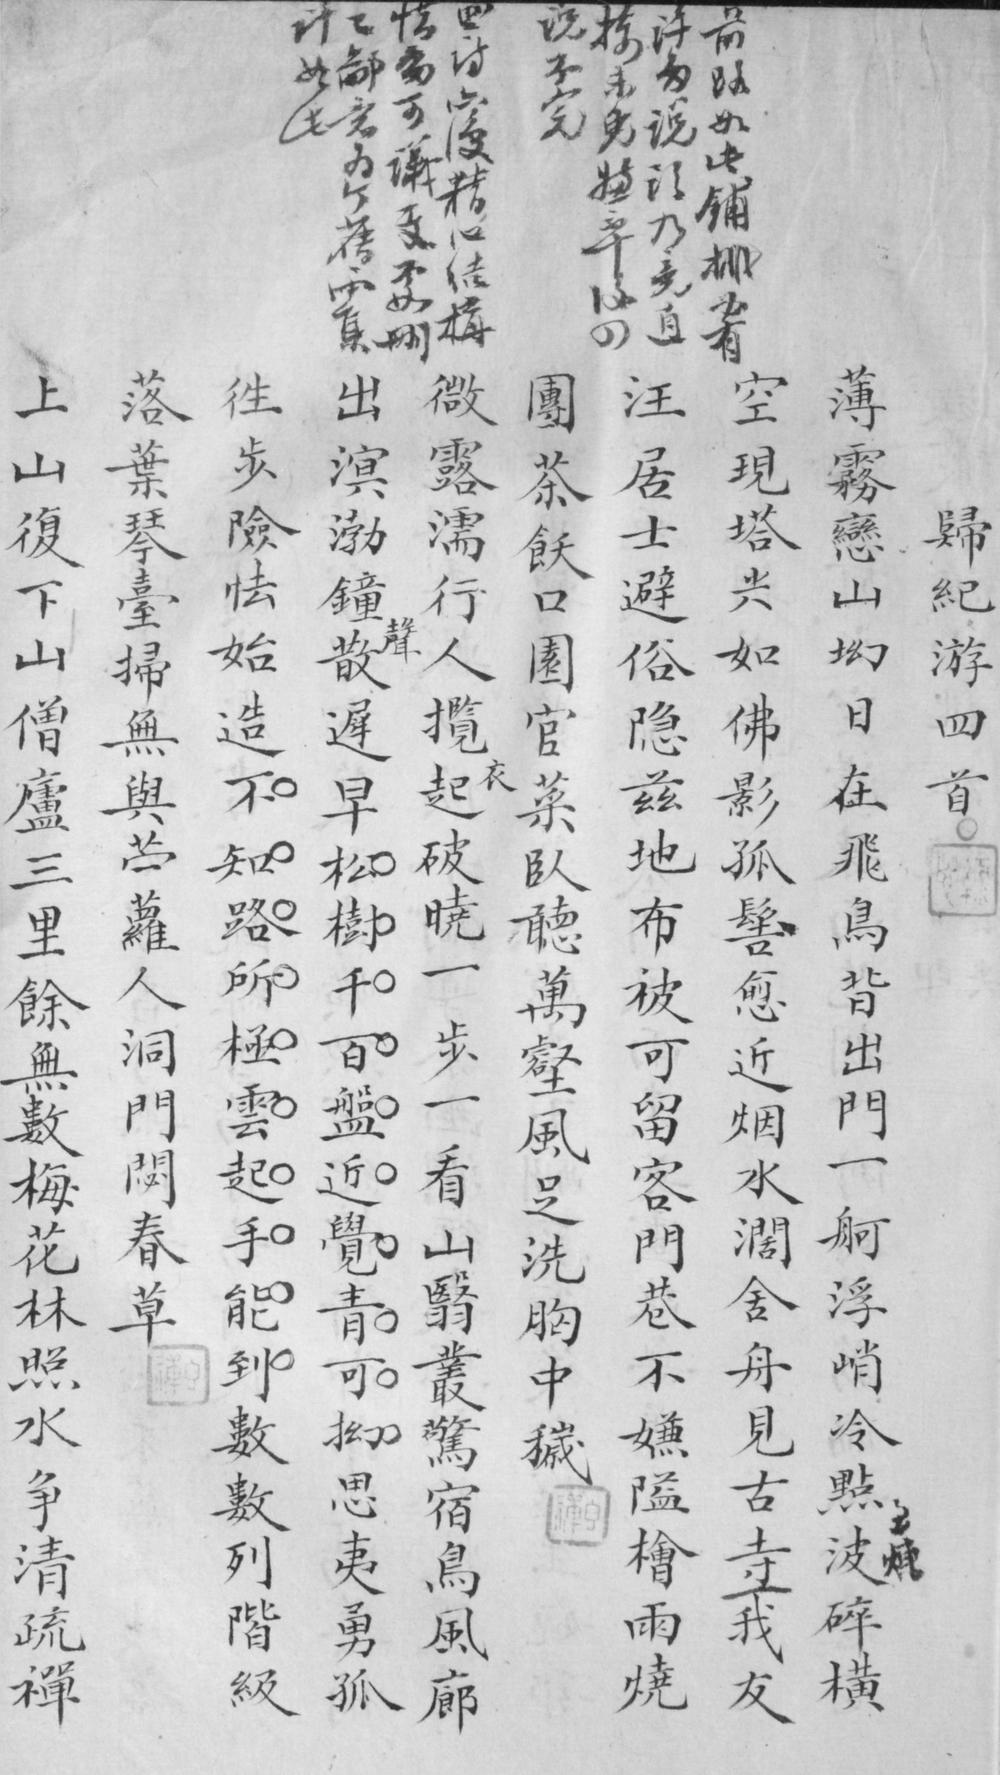 歸紀游四首
薄霧戀山坳日在飛鳥背出門一舸浮峭冷點波碎橫
空現塔尖如佛影孤髻愈近烟水濶舍舟見古寺我友
汪居士避俗隐兹地布被可留客門巷不嫌隘檜雨燒
團茶飫口園官菜臥聽萬壑風足洗胸中穢
微露濡行人攬衣起破曉一步一看山翳叢驚宿鳥風廊
出溟渤鐘聲散遲早松樹千百盤近覺青可抝思夷勇孤
徃步險怯始造不知路所極雲起手能到數數列階級
落葉琴臺掃無與苎蘿人洞門閟春草
上山復下山僧廬三里餘無數梅花林照水争清疏禪
前路如此鋪排者
許多說話乃竟直
接未免草率後四
說不完
四詩宜精心結構
惜尚可議更要刪